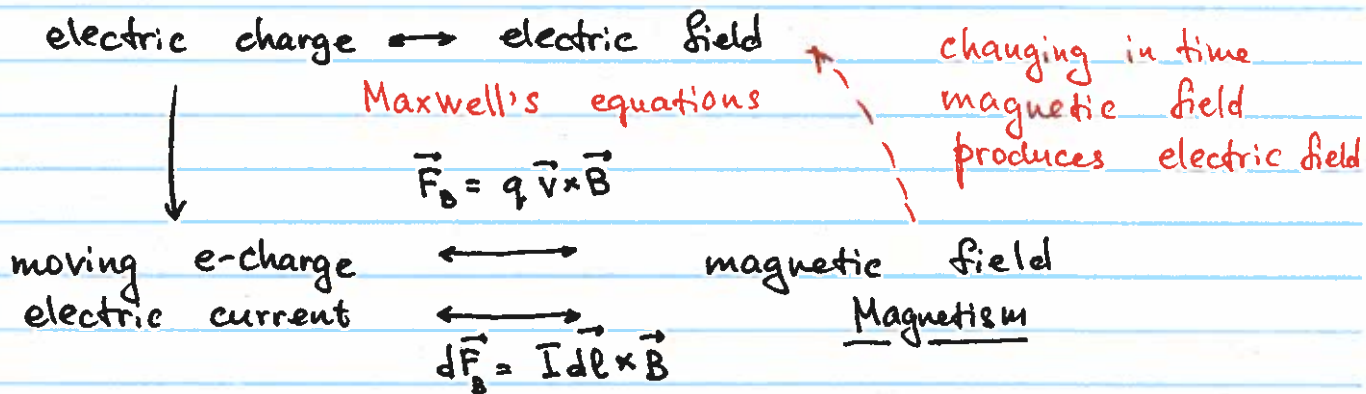 electric charge ⟷ electric field
changing in time
magnetic field
produces electric field
Maxwell's equations
F⃗_B = q v⃗ × B⃗
moving e-charge ⟷ magnetic field
electric current ⟷ Magnetism
dF⃗_B = I dℓ⃗ × B⃗